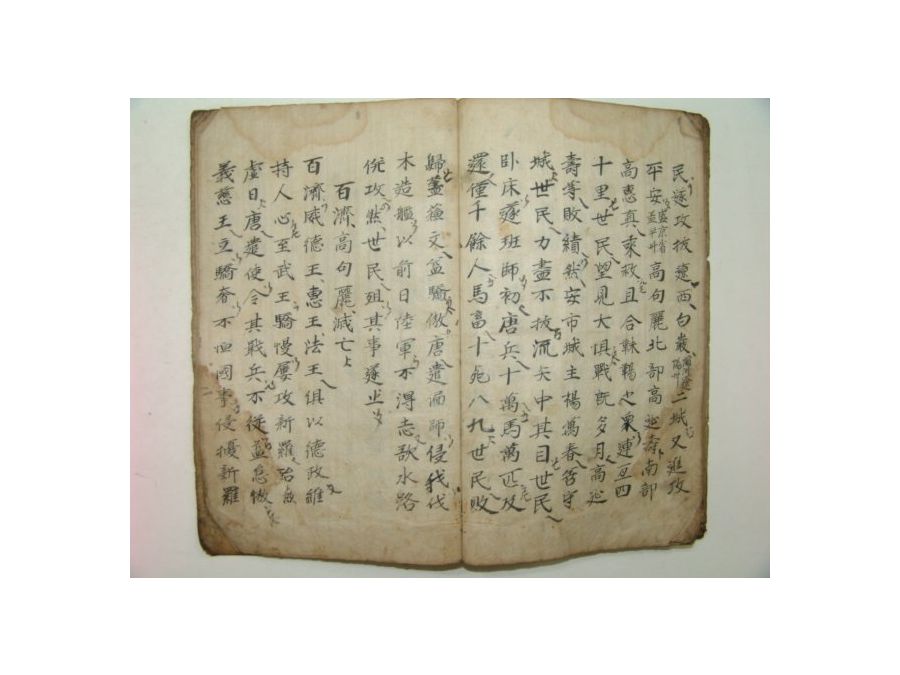 民遂攻拔遼西句巖二城又進攻
平安高句麗北部高延壽南部
高惠眞乘救且合靺鞨之衆連亘四
十里世民望見大惧戰旣多月高延
壽等敗績然安市城主楊萬春答守
城世民力盡不拔流矢中其目世民
卧床遂班師初唐兵十萬馬萬匹及
還僅千餘人馬畜十死八九世民敗
歸蓋蘇文益驕傲唐遣面師侵我伐
木造艦以前日陸軍不得志欲水路
侵攻然世民殂其事遂止
百濟高句麗滅亡
百濟威德王惠王法王俱以德政維
持人心至武王驕慢屢攻新羅殆無
虛日唐遣使令其戢兵亦從益怠傲
義慈王立驕奢不恤國事侵擾新羅